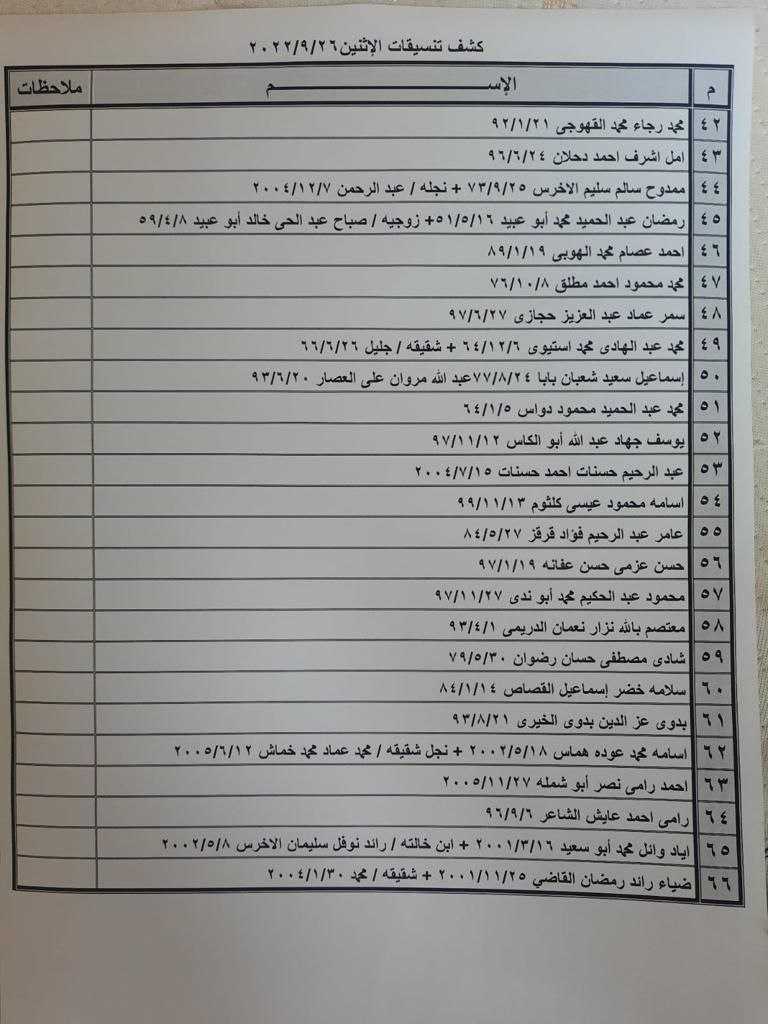 كشف تنسيقات الإثنين ٢٠٢٢/٩/٢٦
م الإســـــــــم ملاحظات
٤٢ محمد رجاء محمد القهوجى ٩٢/١/٢١
٤٣ امل اشرف احمد دحلان ٩٦/٦/٢٤
٤٤ ممدوح سالم سليم الاخرس ٧٣/٩/٢٥ + نجله / عبد الرحمن ٢٠٠٤/١٢/٧
٤٥ رمضان عبد الحميد محمد أبو عبيد ٥١/٥/١٦+ زوجيه / صباح عبد الحى خالد أبو عبيد ٥٩/٤/٨
٤٦ احمد عصام محمد الهوبى ٨٩/١/١٩
٤٧ محمد محمود احمد مطلق ٧٦/١٠/٨
٤٨ سمر عماد عبد العزيز حجازى ٩٧/٦/٢٧
٤٩ محمد عبد الهادى محمد استيوى ٦٤/١٢/٦ + شقيقه / جليل ٦٦/٦/٢٦
٥٠ إسماعيل سعيد شعبان بابا ٧٧/٨/٢٤عبد الله مروان على العصار ٩٣/٦/٢٠
٥١ محمد عبد الحميد محمود دواس ٦٤/١/٥
٥٢ يوسف جهاد عبد الله أبو الكاس ٩٧/١١/١٢
٥٣ عبد الرحيم حسنات احمد حسنات ٢٠٠٤/٧/١٥
٥٤ اسامه محمود عيسى كلثوم ٩٩/١١/١٣
٥٥ عامر عبد الرحيم فؤاد قرقز ٨٤/٥/٢٧
٥٦ حسن عزمى حسن عفانه ٩٧/١/١٩
٥٧ محمود عبد الحكيم محمد أبو ندى ٩٧/١١/٢٧
٥٨ معتصم بالله نزار نعمان الدريمى ٩٣/٤/١
٥٩ شادى مصطفى حسان رضوان ٧٩/٥/٣٠
٦٠ سلامه خضر إسماعيل القصاص ٨٤/١/١٤
٦١ بدوى عز الدين بدوى الخيرى ٩٣/٨/٢١
٦٢ اسامه محمد عوده هماس ٢٠٠٢/٥/١٨ + نجل شقيقه / محمد عماد محمد خماش ٢٠٠٥/٦/١٢
٦٣ احمد رامى نصر أبو شمله ٢٠٠٥/١١/٢٧
٦٤ رامى احمد عايش الشاعر ٩٦/٩/٦
٦٥ اياد وائل محمد أبو سعيد ٢٠٠١/٣/١٦ + ابن خالته / رائد نوفل سليمان الاخرس ٢٠٠٢/٥/٨
٦٦ ضياء رائد رمضان القاضي ٢٠٠١/١١/٢٥ + شقيقه / محمد ٢٠٠٤/١/٣٠